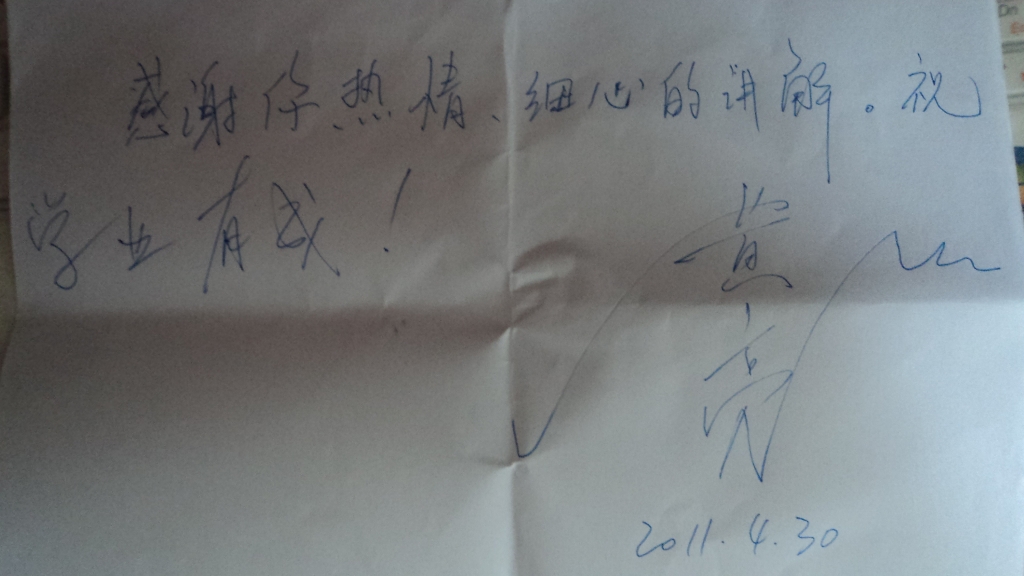 感谢你热情、细心的讲解。祝
学业有成！
黄亮
2011.4.30